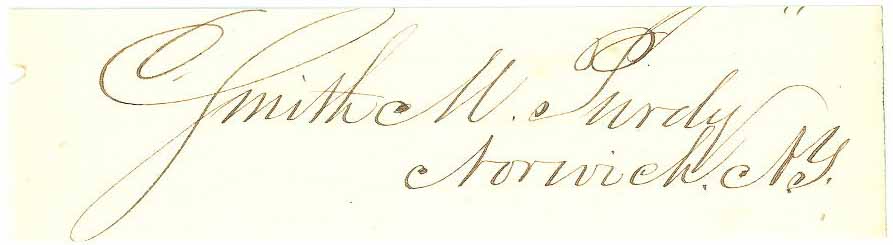 Smith M. Purdy
Norwich. N.Y.